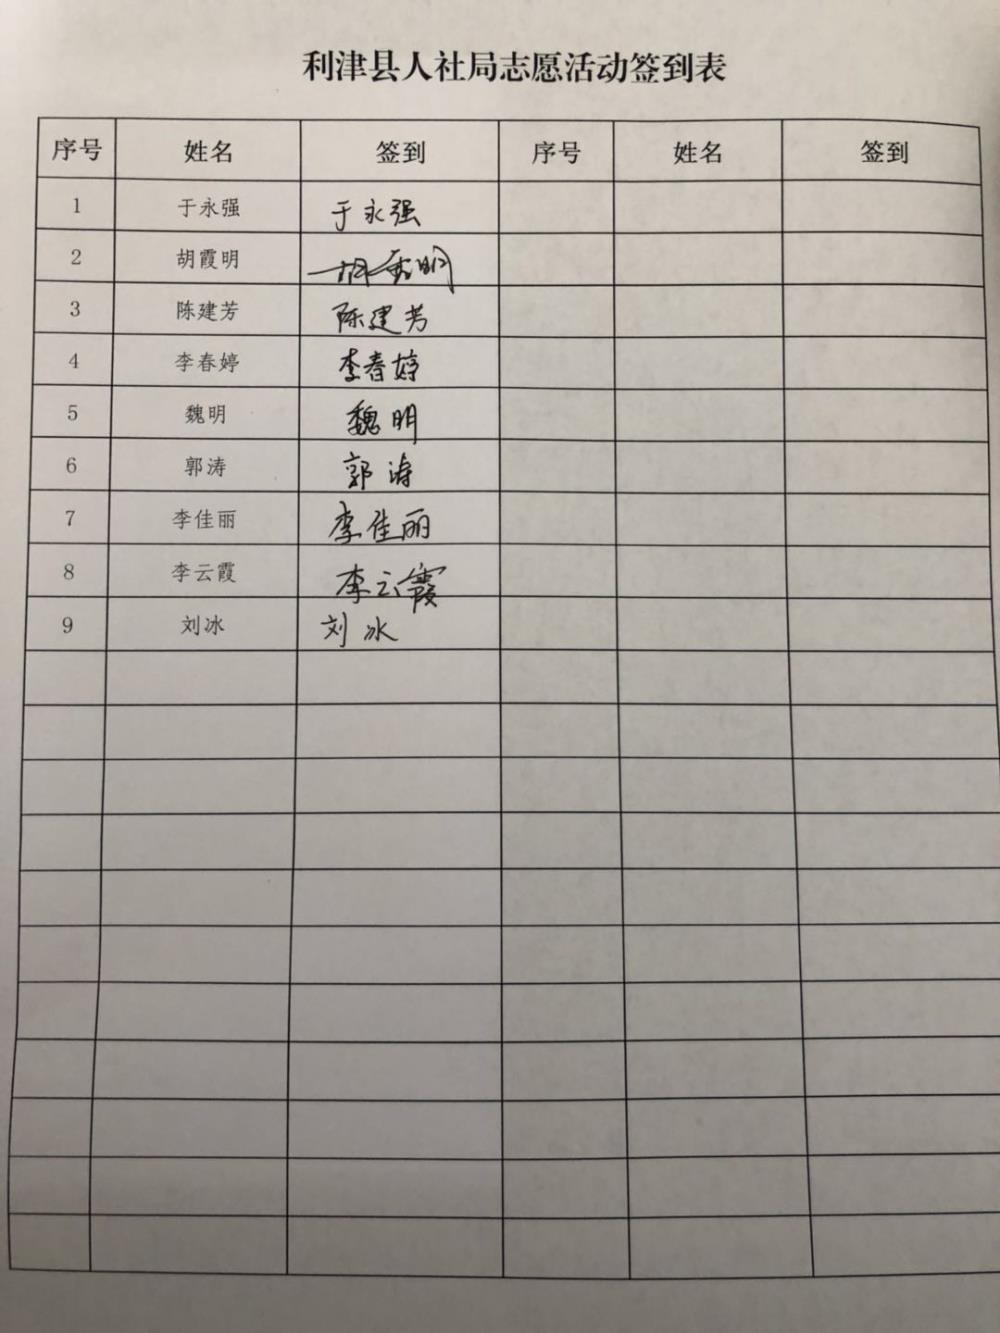 利津县人社局志愿活动签到表
序号 姓名 签到 序号 姓名 签到
1 于永强 于永强
2 胡霞明 胡霞明
3 陈建芳 陈建芳
4 李春婷 李春婷
5 魏明 魏明
6 郭涛 郭涛
7 李佳丽 李佳丽
8 李云霞 李云霞
9 刘冰 刘冰